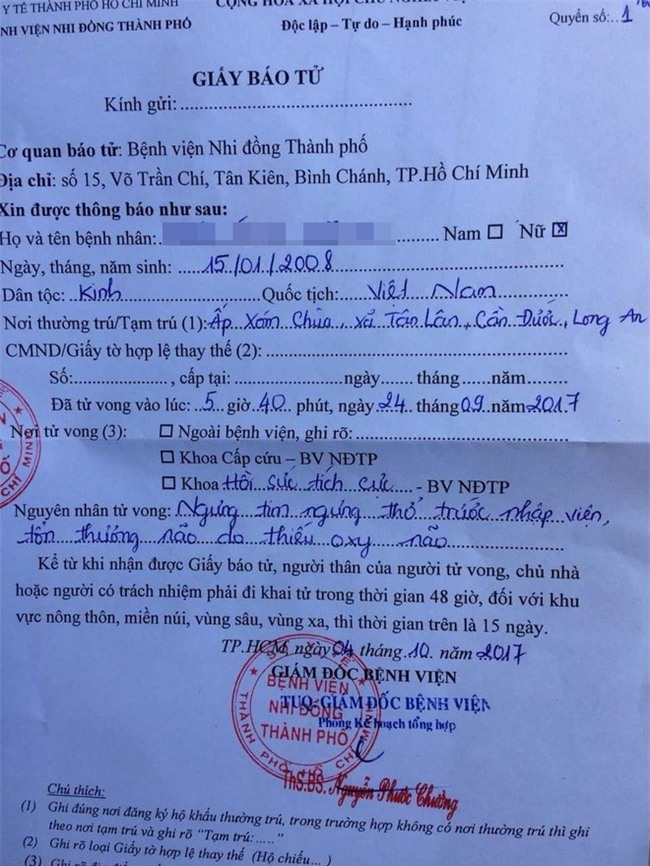 Y TẾ THÀNH PHỐ HỒ CHÍ MINH
NH VIỆN NHI ĐỒNG THÀNH PHỐ
CỘNG HÒA XÃ HỘI CHỦ NGHĨA VIỆT
Độc lập – Tự do – Hạnh phúc
Quyển số:..1
GIẤY BÁO TỬ
Kính gửi:..........................................
Cơ quan báo tử: Bệnh viện Nhi đồng Thành phố
Địa chỉ: số 15, Võ Trần Chí, Tân Kiên, Bình Chánh, TP.Hồ Chí Minh
Xin được thông báo như sau:
Họ và tên bệnh nhân:.......... Nam ☐ Nữ ☒
Ngày, tháng, năm sinh: ....15/01/2008
Dân tộc: ..Kinh..........Quốc tịch:......Việt Nam
Nơi thường trú/Tạm trú (1):Ấp Xóm Chùa, xã Tân Lân, Cần Đước, Long An
CMND/Giấy tờ hợp lệ thay thế (2):..........................................
Số:................., cấp tại:....................ngày...... tháng......năm........
Đã tử vong vào lúc: 5 giờ 40 phút, ngày 24 tháng 09 năm 2017
Nơi tử vong (3): ☐ Ngoài bệnh viện, ghi rõ:..............................
☐ Khoa Cấp cứu – BV NĐTP
☐ Khoa Hồi sức tích cực - BV NĐTP
Nguyên nhân tử vong: Ngưng tim ngưng thở trước nhập viện,
tổn thương não do thiếu oxy não
Kể từ khi nhận được Giấy báo tử, người thân của người tử vong, chủ nhà
hoặc người có trách nhiệm phải đi khai tử trong thời gian 48 giờ, đối với khu
vực nông thôn, miền núi, vùng sâu, vùng xa, thì thời gian trên là 15 ngày.
TP.HCM, ngày 04 tháng 10 năm 2017
GIÁM ĐỐC BỆNH VIỆN
TUQ.GIÁM ĐỐC BỆNH VIỆN
Phòng Kế hoạch tổng hợp
SỞ Y TẾ
BỆNH VIỆN
NHI ĐỒNG
THÀNH PHỐ
THÀNH PHỐ HỒ CHÍ MINH
ThS.BS. Nguyễn Phước Chưởng
Chú thích:
(1) Ghi đúng nơi đăng ký hộ khẩu thường trú, trong trường hợp không có nơi thường trú thì ghi
theo nơi tạm trú và ghi rõ "Tạm trú:....."
(2) Ghi rõ loại Giấy tờ hợp lệ thay thế (Hộ chiếu... )
(3) Ghi rõ